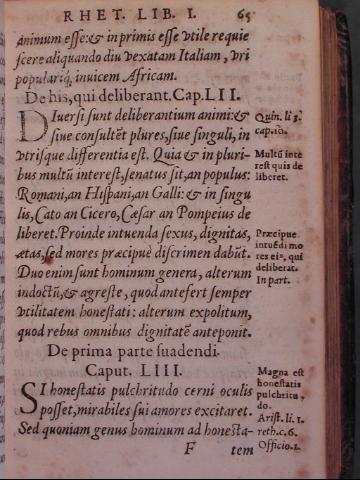 RHET. LIB. I. 65
Animum esse:& in primis esse vtile requie
scere aliquando diu vexatam Italiam, vri
populariq; inuicem Africam.
De his, qui deliberant. Cap. LII.
DIuersi sunt deliberantium animi:&
siue consultēt plures, siue singuli, in
vtrisque differentia est. Quia & in pluri-
bus multū interest, senatus sit, an populus:
Romani, an Hispani, an Galli: & in singu
lis, Cato an Cicero, Cæsar an Pompeius de
liberet. Proinde intuenda sexus, dignitas,
ætas, sed mores præcipuè discrimen dabūt.
Duo enim sunt hominum genera, alterum
indoctū,& agreste, quod antefert semper
vtilitatem honestati: alterum expolitum,
quod rebus omnibus dignitatē anteponit.
De prima parte suadendi.
Caput. LIII.
SI honestatis pulchritudo cerni oculis
posset, mirabiles sui amores excitaret.
Sed quoniam genus hominum ad honesta-
F tem
Quin. li 3.
cap. 10.
Multū inte
rest quis de
liberet.
Præcipue
intuēdi mo
res eius, qui
deliberat.
In part.
Magna est
honestatis
pulchritu
do.
Arist. li. 1.
reth. c. 6.
Officio. 1.